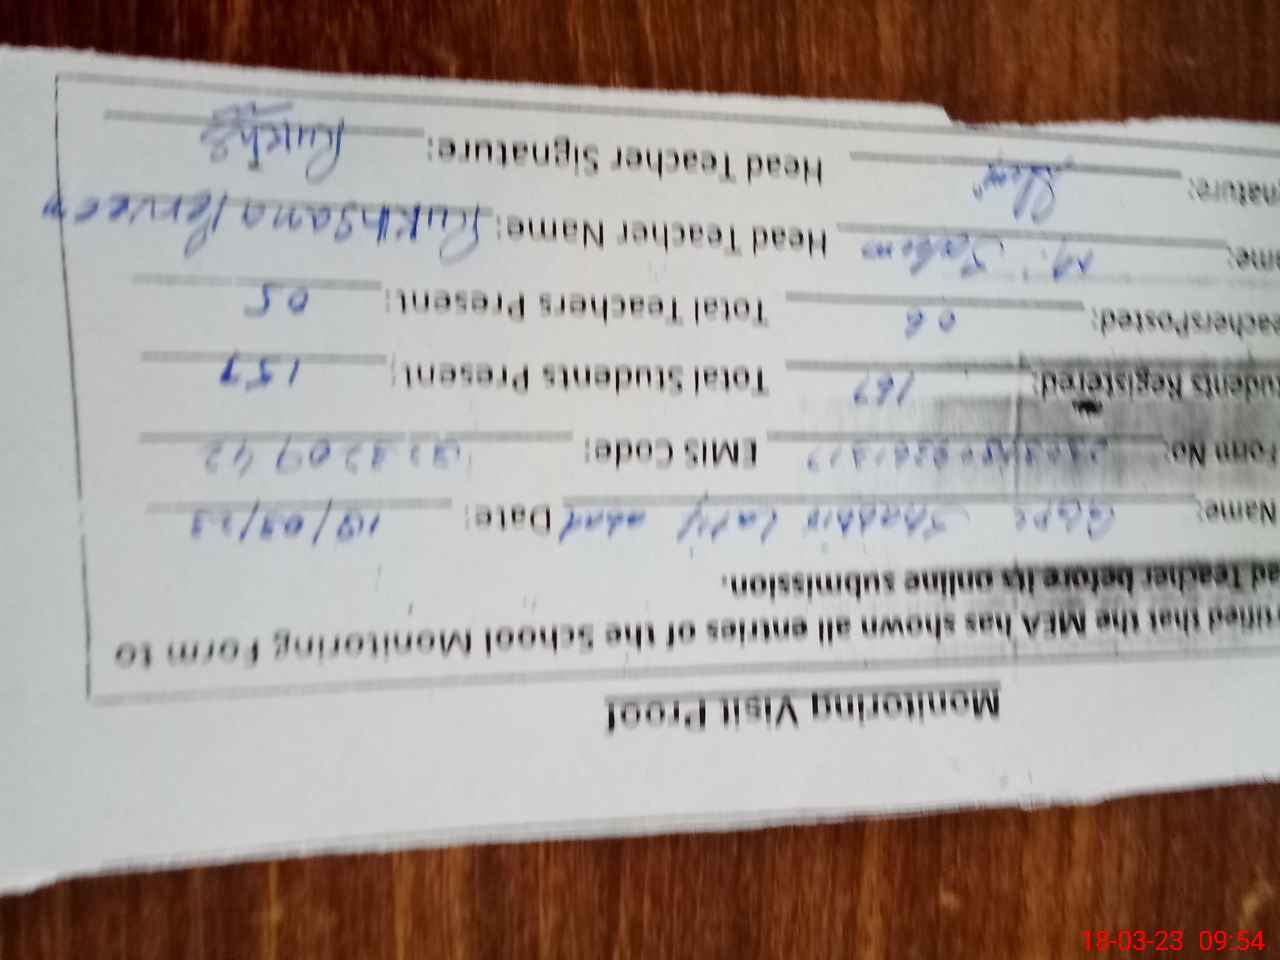 Monitoring Visit Proof
rtified that the MEA has shown all entries of the School Monitoring Form to
ad Teacher before its online submission.
Name: GGPS Shabbir Latif abad Date: 18/03/23
Form No: EMIS Code: 32320942
udents Registered: 167 Total Students Present: 157
eachersPosted: 06 Total Teachers Present: 05
ame: M. Saleem Head Teacher Name: Rukhsana Perveen
gnature: Head Teacher Signature: Rukhs
18-03-23 09:54